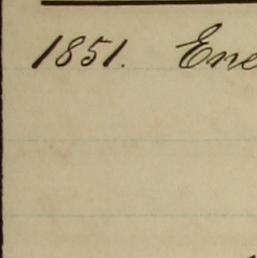 1851. Ene